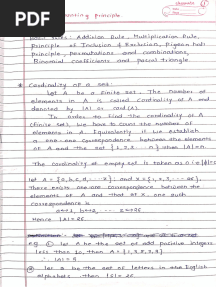 PDF
Counting principle.
Basic Rules: Addition Rule, Multiplication Rule,
Principle of Inclusion & Exclusion, Pigeon hole
principle, permutations and combinations,
Binomial coefficients and pascal triangle.
* Cardinality of a set:
Let A be a finite set. The number of
elements in A is called cardinality of A and
denoted by |A| or card(A).
In order to find the cardinality of A
(finite set), we have to count the number of
elements in A. Equivalently if we establish
a one-one correspondence between the elements
of A and the set {1, 2, 3, ... n} when |A|=n.
The cardinality of empty set is taken as 0 i.e. |ϕ|=
Let A = {a, b, c, d, ... z} and X = {1, 2, 3, ... 26},
There exists one-one correspondence between the
elements of A and that of X. one such
Correspondence is
a→1, b→2, ... z→26
Hence |A| = 26.
e.g. ① Let A be the set of add positive integers
less than 10, then A = {1, 3, 5, 7, 9}
∴ |A| = 5
② Let A be the set of letters in the English
alphabets then |A| = 26